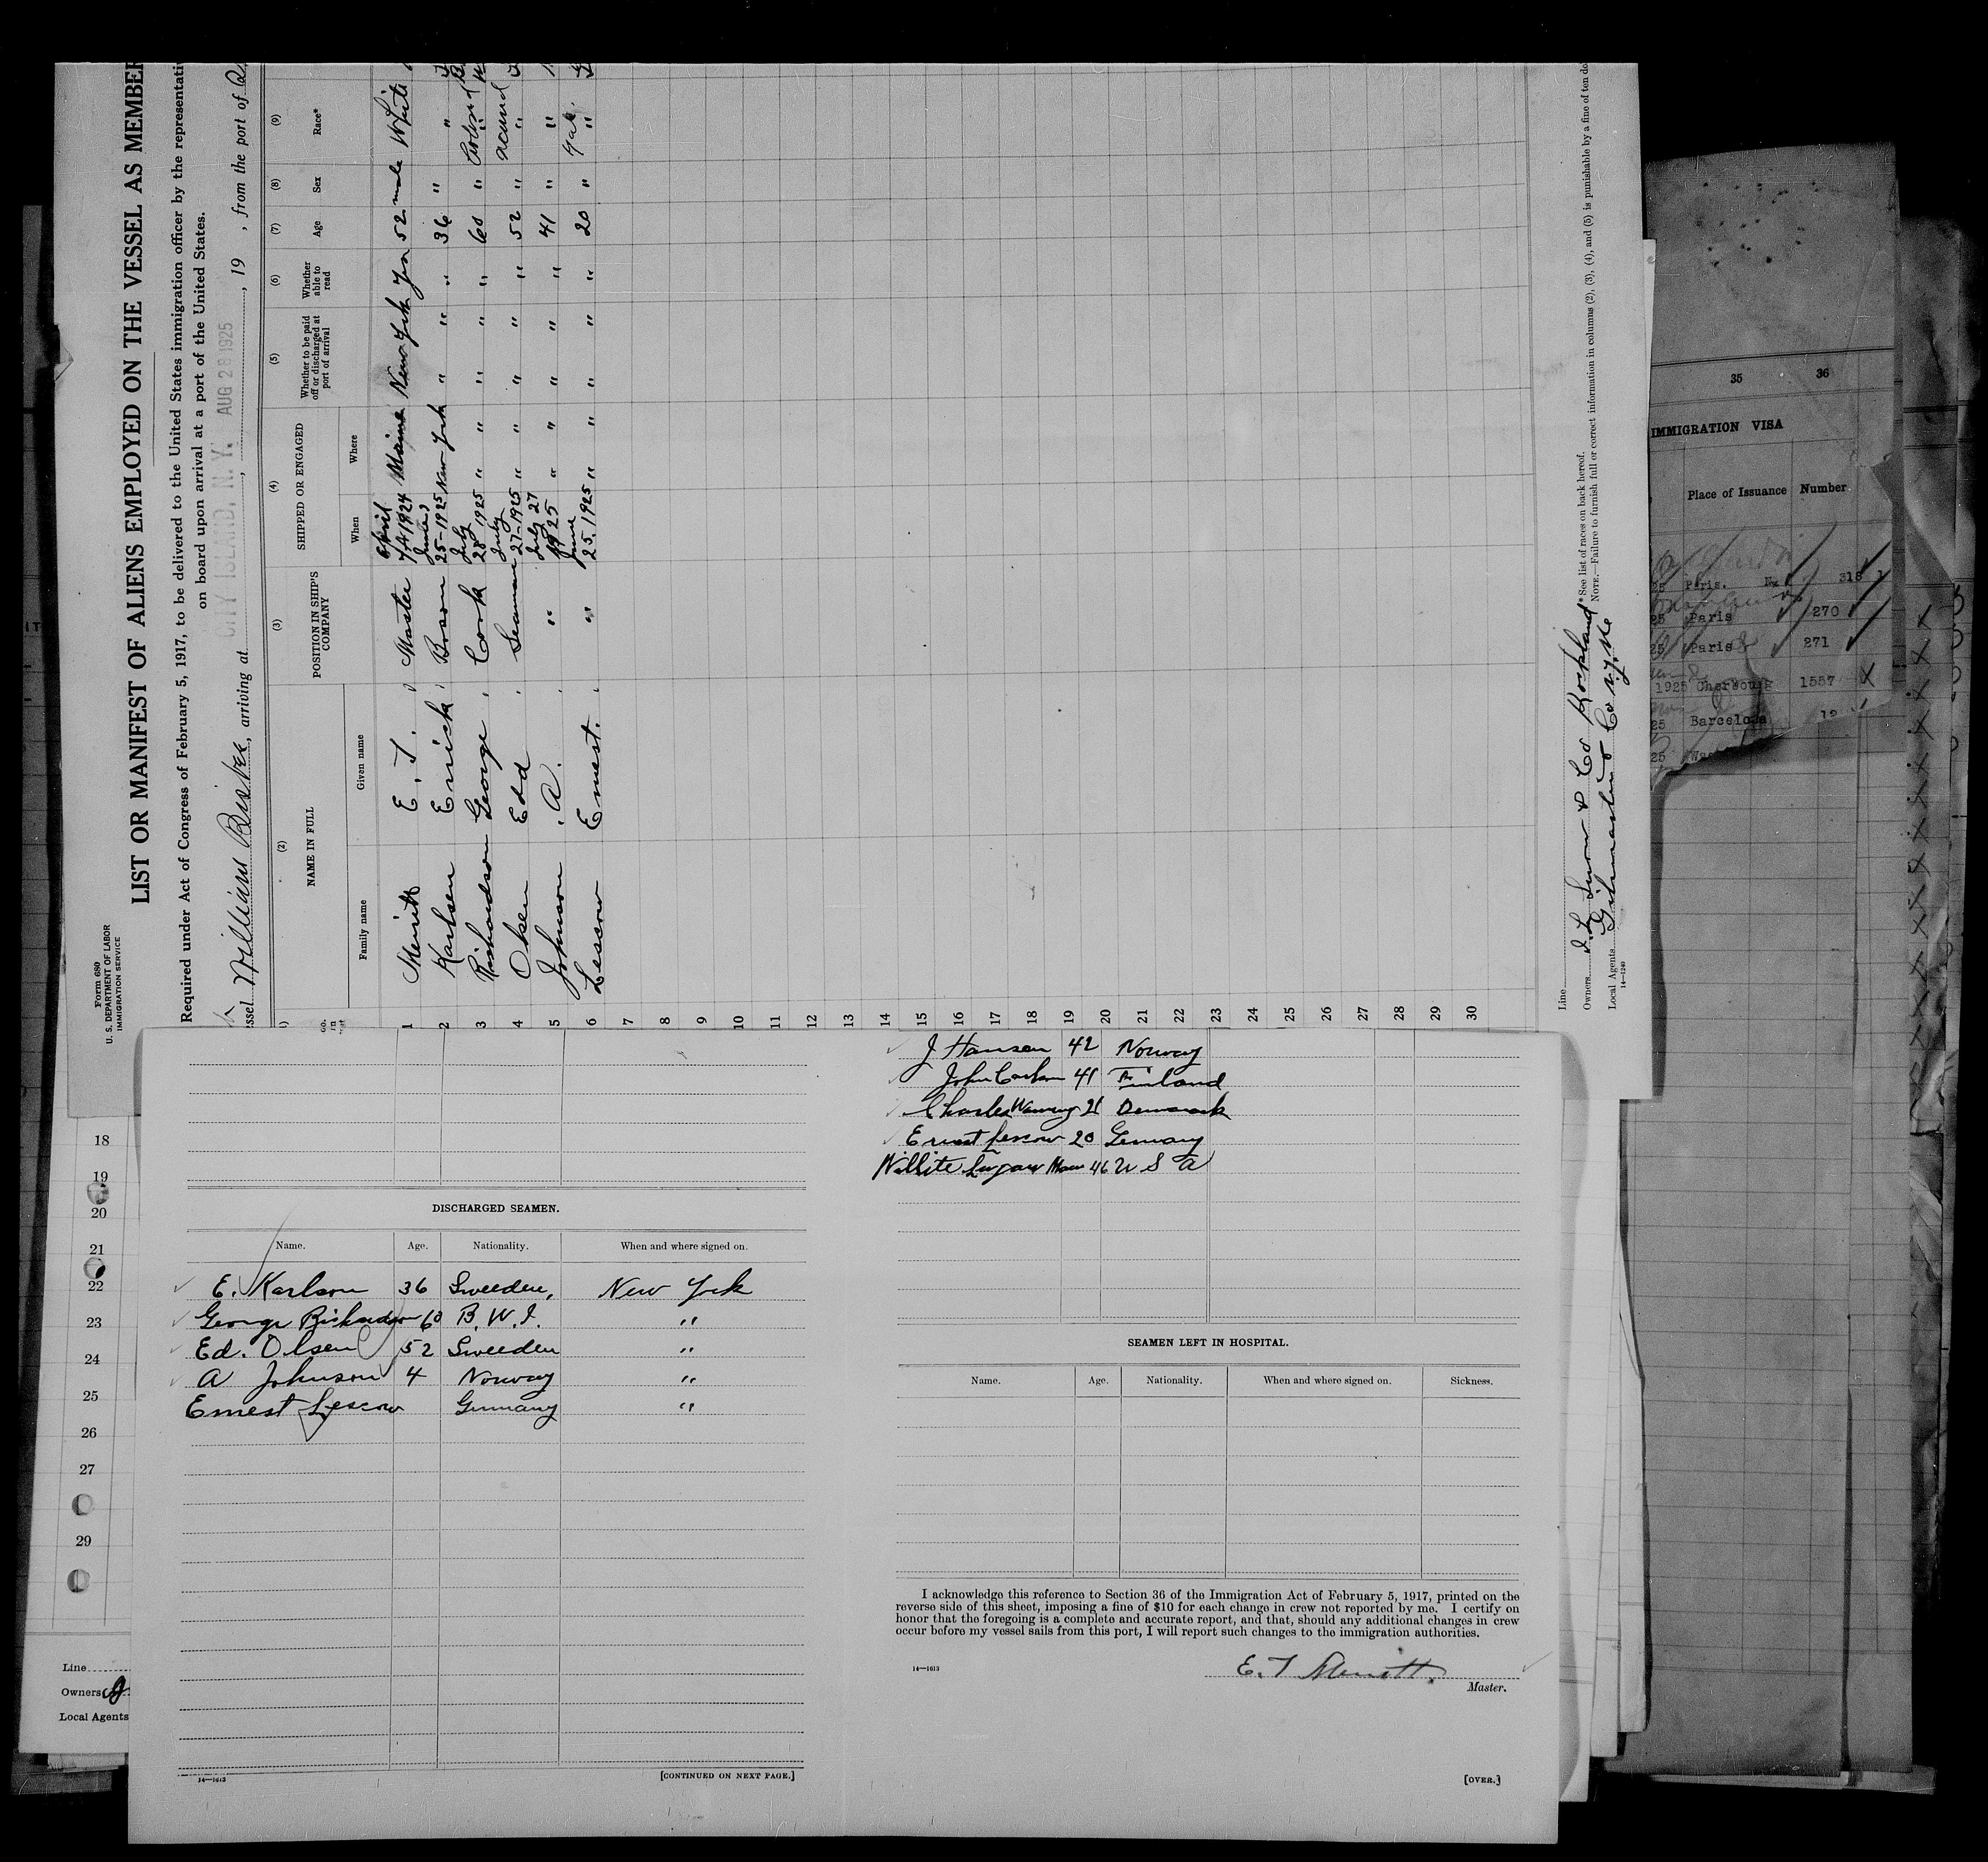 Form 680
U. S. DEPARTMENT OF LABOR
IMMIGRATION SERVICE
LIST OR MANIFEST OF ALIENS EMPLOYED ON THE VESSEL AS MEMBER
Required under Act of Congress of February 5, 1917, to be delivered to the United States immigration officer by the representati
on board upon arrival at a port of the United States.
ssel William Bisbee, arriving at CITY ISLAND, N. Y. AUG 28 1925, 19 , from the port of
(2) (3) (4) (5) (6) (7) (8) (9)
NAME IN FULL POSITION IN SHIP'S COMPANY SHIPPED OR ENGAGED Whether to be paid off or discharged at port of arrival Whether able to read Age Sex Race*
Family name Given name When Where
1 Merritt E. T. Master April 1924 Maine New York Yes 52 male White
2 Karlsen Enrick Bosun 25-1925 New York " " 36 " "
3 Richardson George Cook July 28 1925 " " " " " 60 "
4 Olsen Edd Seaman July 27-1925 " " " " " 52 " "
5 Johnson A. " July 27 1925 " " " " " 41 " "
6 Lescow Ernest. " June 25.1925 " " " " " 20 " "
7
8
9
10
11
12
13
14
15
16
17
18
19
20
21
22
23
24
25
26
27
28
29
30
Line
* See list of races on back hereof.
Owners Snow & Co Rockland
NOTE.—Failure to furnish full or correct information in columns (2), (3), (4), and (5) is punishable by a fine of ten do
Local Agents Co N.Y.
14—1240
35 36
IMMIGRATION VISA
Place of Issuance Number
25 Paris. 318
25 Paris 270
25 Paris 271
1925 Cherbourg 1557
25 Barcelona 12
25
18
19
20
21
22
23
24
25
26
27
29
Line
Owners
Local Agents
J Hansen 42 Norway
John Carlson 41 Finland
Charles 21 Denmark
Ernest Lescow 20 Germany
46 U S A
DISCHARGED SEAMEN.
Name. Age. Nationality. When and where signed on.
E. Karlson 36 Sweeden, New York
George Richardson 60 B. W. I. "
Ed. Olsen 52 Sweeden "
A Johnson 4 Norway "
Ernest Lescow Germany "
14—1613
[CONTINUED ON NEXT PAGE.]
SEAMEN LEFT IN HOSPITAL.
Name. Age. Nationality. When and where signed on. Sickness.
I acknowledge this reference to Section 36 of the Immigration Act of February 5, 1917, printed on the
reverse side of this sheet, imposing a fine of $10 for each change in crew not reported by me. I certify on
honor that the foregoing is a complete and accurate report, and that, should any additional changes in crew
occur before my vessel sails from this port, I will report such changes to the immigration authorities.
14—1613
E. T Merritt.
Master.
[OVER.]